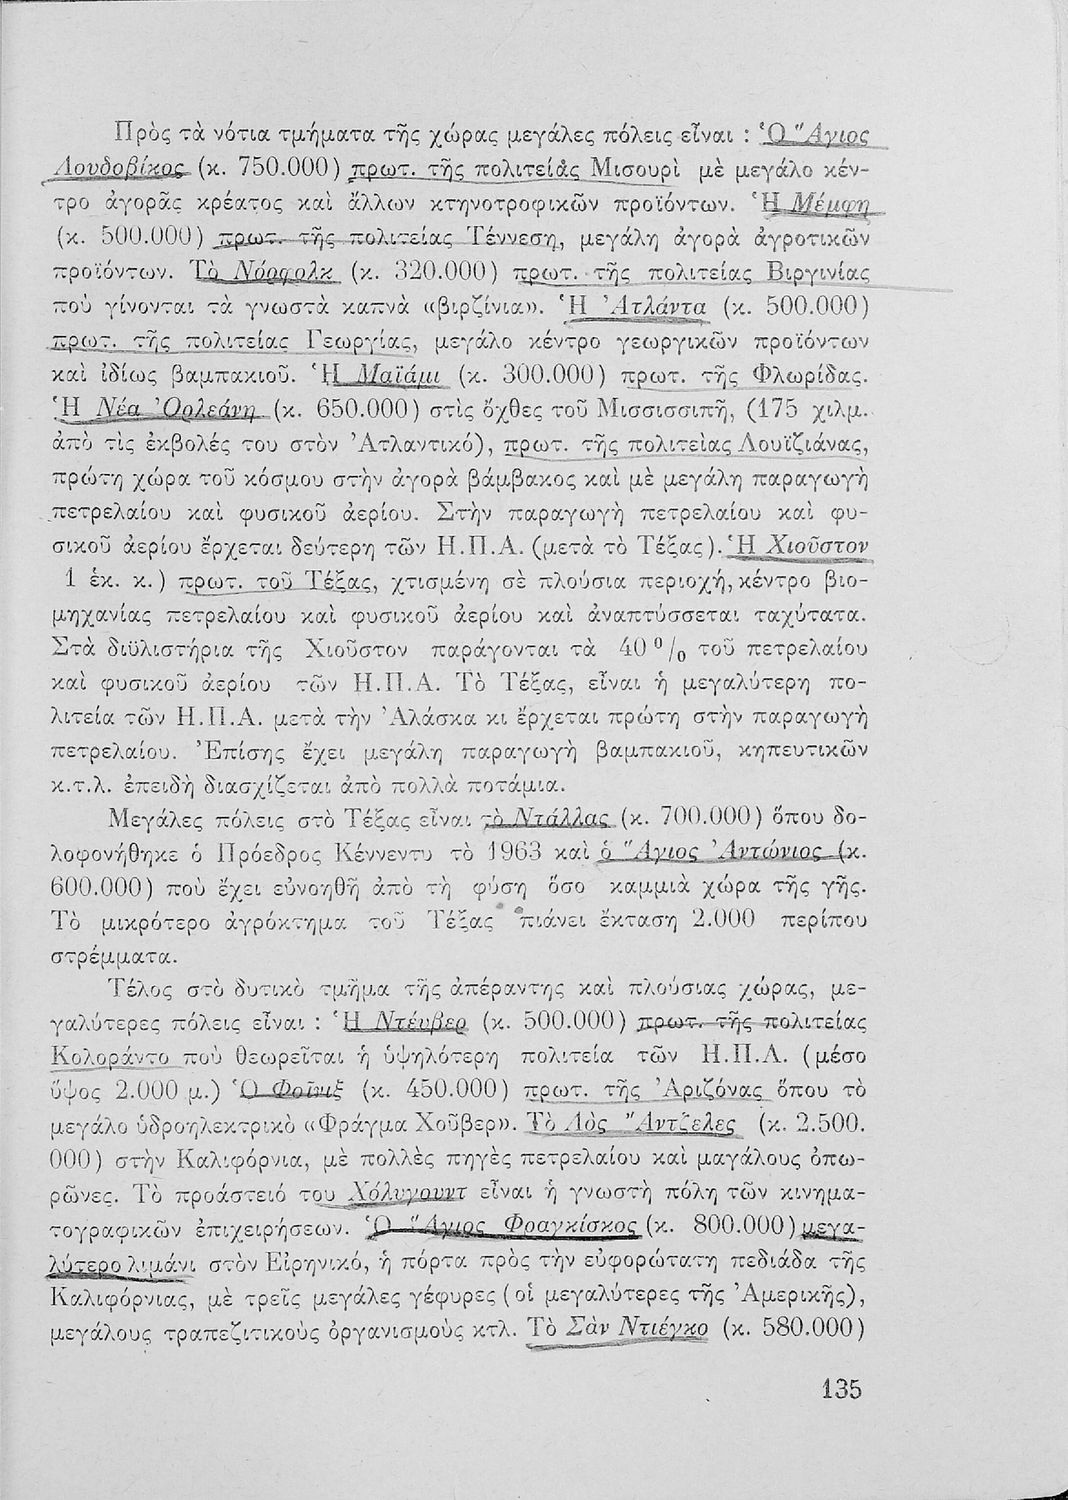 Πρὸς τὰ νότια τμήματα τῆς χώρας μεγάλες πόλεις εἶναι : Ὁ Ἅγιος
Λουδοβίκος (κ. 750.000) πρωτ. τῆς πολιτείας Μισουρὶ μὲ μεγάλο κέν-
τρο ἀγορᾶς κρέατος καὶ ἄλλων κτηνοτροφικῶν προϊόντων. Ἡ Μέμφη
(κ. 500.000) πρωτ. τῆς πολιτείας Τέννεση, μεγάλη ἀγορὰ ἀγροτικῶν
προϊόντων. Τὸ Νόρφολκ (κ. 320.000) πρωτ. τῆς πολιτείας Βιργινίας
ποὺ γίνονται τὰ γνωστὰ καπνὰ «βιρζίνια». Ἡ Ἀτλάντα (κ. 500.000)
πρωτ. τῆς πολιτείας Γεωργίας, μεγάλο κέντρο γεωργικῶν προϊόντων
καὶ ἰδίως βαμπακιοῦ. Ἡ Μαϊάμι (κ. 300.000) πρωτ. τῆς Φλωρίδας.
Ἡ Νέα Ὀρλεάνη (κ. 650.000) στὶς ὄχθες τοῦ Μισσισσιπῆ, (175 χιλμ.
ἀπὸ τὶς ἐκβολές του στὸν Ἀτλαντικό), πρωτ. τῆς πολιτείας Λουϊζιάνας,
πρώτη χώρα τοῦ κόσμου στὴν ἀγορὰ βάμβακος καὶ μὲ μεγάλη παραγωγὴ
πετρελαίου καὶ φυσικοῦ ἀερίου. Στὴν παραγωγὴ πετρελαίου καὶ φυ-
σικοῦ ἀερίου ἔρχεται δεύτερη τῶν Η.Π.Α. (μετὰ τὸ Τέξας). Ἡ Χιοῦστον
1 ἑκ. κ.) πρωτ. τοῦ Τέξας, χτισμένη σὲ πλούσια περιοχή, κέντρο βιο-
μηχανίας πετρελαίου καὶ φυσικοῦ ἀερίου καὶ ἀναπτύσσεται ταχύτατα.
Στὰ διϋλιστήρια τῆς Χιοῦστον παράγονται τὰ 40 % τοῦ πετρελαίου
καὶ φυσικοῦ ἀερίου τῶν Η.Π.Α. Τὸ Τέξας, εἶναι ἡ μεγαλύτερη πο-
λιτεία τῶν Η.Π.Α. μετὰ τὴν Ἀλάσκα κι ἔρχεται πρώτη στὴν παραγωγὴ
πετρελαίου. Ἐπίσης ἔχει μεγάλη παραγωγὴ βαμπακιοῦ, κηπευτικῶν
κ.τ.λ. ἐπειδὴ διασχίζεται ἀπὸ πολλὰ ποτάμια.
Μεγάλες πόλεις στὸ Τέξας εἶναι τὸ Ντάλλας (κ. 700.000) ὅπου δο-
λοφονήθηκε ὁ Πρόεδρος Κέννεντυ τὸ 1963 καὶ ὁ Ἅγιος Ἀντώνιος (κ.
600.000) ποὺ ἔχει εὐνοηθῆ ἀπὸ τὴ φύση ὅσο καμμιὰ χώρα τῆς γῆς.
Τὸ μικρότερο ἀγρόκτημα τοῦ Τέξας πιάνει ἔκταση 2.000 περίπου
στρέμματα.
Τέλος στὸ δυτικὸ τμῆμα τῆς ἀπέραντης καὶ πλούσιας χώρας, με-
γαλύτερες πόλεις εἶναι : Ἡ Ντένβερ (κ. 500.000) πρωτ. τῆς πολιτείας
Κολοράντο ποὺ θεωρεῖται ἡ ὑψηλότερη πολιτεία τῶν Η.Π.Α. (μέσο
ὕψος 2.000 μ.) Ὁ Φοῖνιξ (κ. 450.000) πρωτ. τῆς Ἀριζόνας ὅπου τὸ
μεγάλο ὑδροηλεκτρικὸ «Φράγμα Χοῦβερ». Τὸ Λὸς Ἄντζελες (κ. 2.500.
000) στὴν Καλιφόρνια, μὲ πολλὲς πηγὲς πετρελαίου καὶ μαγάλους ὀπω-
ρῶνες. Τὸ προάστειό του Χόλυγουντ εἶναι ἡ γνωστὴ πόλη τῶν κινημα-
τογραφικῶν ἐπιχειρήσεων. Ὁ Ἅγιος Φραγκίσκος (κ. 800.000) μεγα-
λύτερο λιμάνι στὸν Εἰρηνικό, ἡ πόρτα πρὸς τὴν εὐφορώτατη πεδιάδα τῆς
Καλιφόρνιας, μὲ τρεῖς μεγάλες γέφυρες (οἱ μεγαλύτερες τῆς Ἀμερικῆς),
μεγάλους τραπεζιτικοὺς ὀργανισμοὺς κτλ. Τὸ Σὰν Ντιέγκο (κ. 580.000)
135